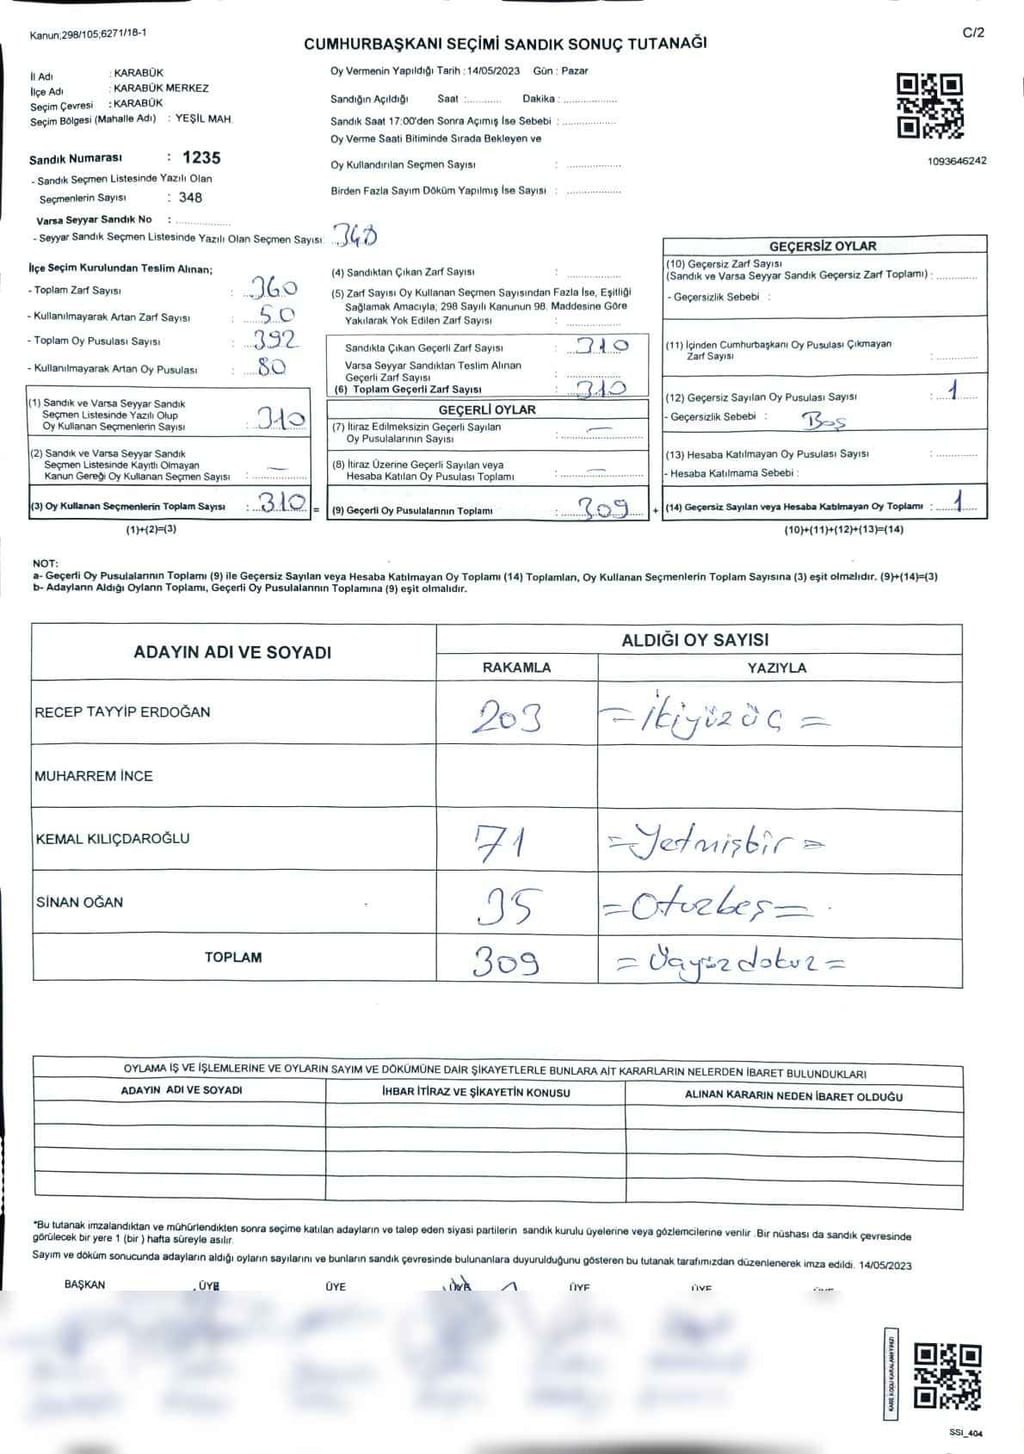 Kanun;298/105;6271/18-1
C/2
CUMHURBAŞKANI SEÇİMİ SANDIK SONUÇ TUTANAĞI
İl Adı : KARABÜK
İlçe Adı : KARABÜK MERKEZ
Seçim Çevresi : KARABÜK
Seçim Bölgesi (Mahalle Adı) : YEŞİL MAH.
Sandık Numarası : 1235
- Sandık Seçmen Listesinde Yazılı Olan
Seçmenlerin Sayısı : 348
Varsa Seyyar Sandık No :
- Seyyar Sandık Seçmen Listesinde Yazılı Olan Seçmen Sayısı 348
Oy Vermenin Yapıldığı Tarih : 14/05/2023 Gün : Pazar
Sandığın Açıldığı Saat : Dakika :
Sandık Saat 17:00'den Sonra Açılmış İse Sebebi :
Oy Verme Saati Bitiminde Sırada Bekleyen ve
Oy Kullandırılan Seçmen Sayısı :
Birden Fazla Sayım Döküm Yapılmış İse Sayısı :
1093646242
İlçe Seçim Kurulundan Teslim Alınan;
- Toplam Zarf Sayısı : 360
- Kullanılmayarak Artan Zarf Sayısı : 50
- Toplam Oy Pusulası Sayısı : 392
- Kullanılmayarak Artan Oy Pusulası : 80
(1) Sandık ve Varsa Seyyar Sandık
Seçmen Listesinde Yazılı Olup
Oy Kullanan Seçmenlerin Sayısı : 310
(2) Sandık ve Varsa Seyyar Sandık
Seçmen Listesinde Kayıtlı Olmayan
Kanun Gereği Oy Kullanan Seçmen Sayısı : —
(3) Oy Kullanan Seçmenlerin Toplam Sayısı : 310 =
(1)+(2)=(3)
(4) Sandıktan Çıkan Zarf Sayısı :
(5) Zarf Sayısı Oy Kullanan Seçmen Sayısından Fazla İse, Eşitliği
Sağlamak Amacıyla; 298 Sayılı Kanunun 98. Maddesine Göre
Yakılarak Yok Edilen Zarf Sayısı :
Sandıkta Çıkan Geçerli Zarf Sayısı : 310
Varsa Seyyar Sandıktan Teslim Alınan
Geçerli Zarf Sayısı :
(6) Toplam Geçerli Zarf Sayısı : 310
GEÇERLİ OYLAR
(7) İtiraz Edilmeksizin Geçerli Sayılan
Oy Pusulalarının Sayısı : —
(8) İtiraz Üzerine Geçerli Sayılan veya
Hesaba Katılan Oy Pusulası Toplamı : —
(9) Geçerli Oy Pusulalarının Toplamı : 309 +
GEÇERSİZ OYLAR
(10) Geçersiz Zarf Sayısı
(Sandık ve Varsa Seyyar Sandık Geçersiz Zarf Toplamı) :
- Geçersizlik Sebebi :
(11) İçinden Cumhurbaşkanı Oy Pusulası Çıkmayan
Zarf Sayısı :
(12) Geçersiz Sayılan Oy Pusulası Sayısı : 1
- Geçersizlik Sebebi : Boş
(13) Hesaba Katılmayan Oy Pusulası Sayısı :
- Hesaba Katılmama Sebebi :
(14) Geçersiz Sayılan veya Hesaba Katılmayan Oy Toplamı : 1
(10)+(11)+(12)+(13)=(14)
NOT:
a- Geçerli Oy Pusulalarının Toplamı (9) ile Geçersiz Sayılan veya Hesaba Katılmayan Oy Toplamı (14) Toplamları, Oy Kullanan Seçmenlerin Toplam Sayısına (3) eşit olmalıdır. (9)+(14)=(3)
b- Adayların Aldığı Oyların Toplamı, Geçerli Oy Pusulalarının Toplamına (9) eşit olmalıdır.
ADAYIN ADI VE SOYADI
ALDIĞI OY SAYISI
RAKAMLA YAZIYLA
RECEP TAYYİP ERDOĞAN 203 = ikiyüz üç =
MUHARREM İNCE
KEMAL KILIÇDAROĞLU 71 = Yetmişbir =
SİNAN OĞAN 35 = Otuzbeş =
TOPLAM 309 = Üçyüz dokuz =
OYLAMA İŞ VE İŞLEMLERİNE VE OYLARIN SAYIM VE DÖKÜMÜNE DAİR ŞİKAYETLERLE BUNLARA AİT KARARLARIN NELERDEN İBARET BULUNDUKLARI
ADAYIN ADI VE SOYADI İHBAR İTİRAZ VE ŞİKAYETİN KONUSU ALINAN KARARIN NEDEN İBARET OLDUĞU
*Bu tutanak imzalandıktan ve mühürlendikten sonra seçime katılan adayların ve talep eden siyasi partilerin sandık kurulu üyelerine veya gözlemcilerine verilir. Bir nüshası da sandık çevresinde
görülecek bir yere 1 (bir ) hafta süreyle asılır.
Sayım ve döküm sonucunda adayların aldığı oyların sayılarını ve bunların sandık çevresinde bulunanlara duyurulduğunu gösteren bu tutanak tarafımızdan düzenlenerek imza edildi. 14/05/2023
BAŞKAN ÜYE ÜYE ÜYE ÜYE ÜYE
SSI_404